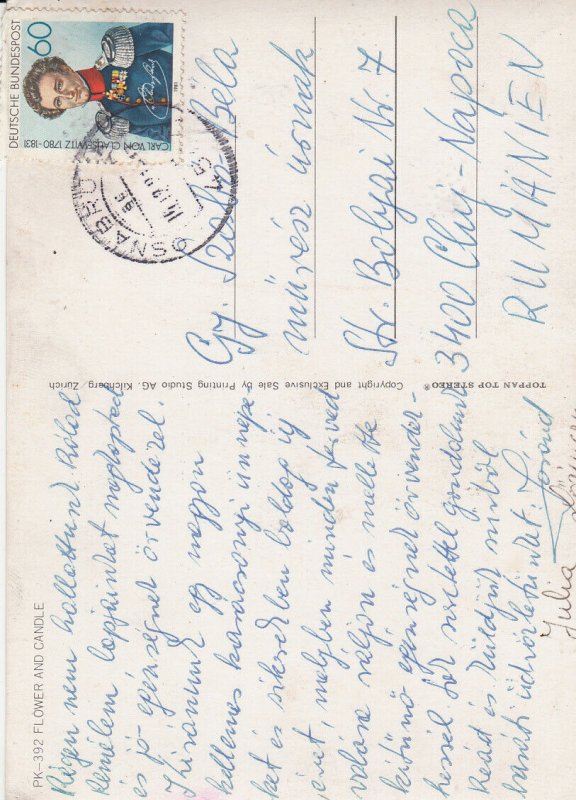 DEUTSCHE BUNDESPOST
60
CARL VON CLAUSEWITZ 1780-1831
1981
OSNABRÜ
Gy. Szabó Béla
művész úrnak
Str. Bolyai Nr. 7
3400 Cluj-Napoca
RUMÄNIEN
TOPPAN TOP STEREO® Copyright and Exclusive Sale by Printing Studio AG. Kilchberg, Zürich
PK-392 FLOWER AND CANDLE
Régen nem hallottunk Rólad
Remélem lapjainkat megkaptad
és jó egészségnek örvendezel.
Kívánunk egy nagyon
kellemes karácsonyi ünnepe
ket és sikerekben boldog új
évet, melyben minden terved
valóra váljon és mellette
kitűnő egészségnek örvendez-
hessél. Sok szeretettel gondolunk
Reád és küldjük szívből
baráti üdvözletünket. Lóránd
Julia